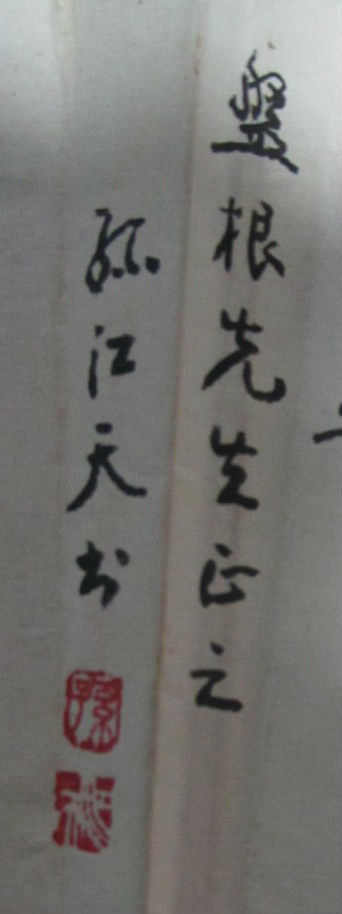 盤根先生正之
孫江天书
孫